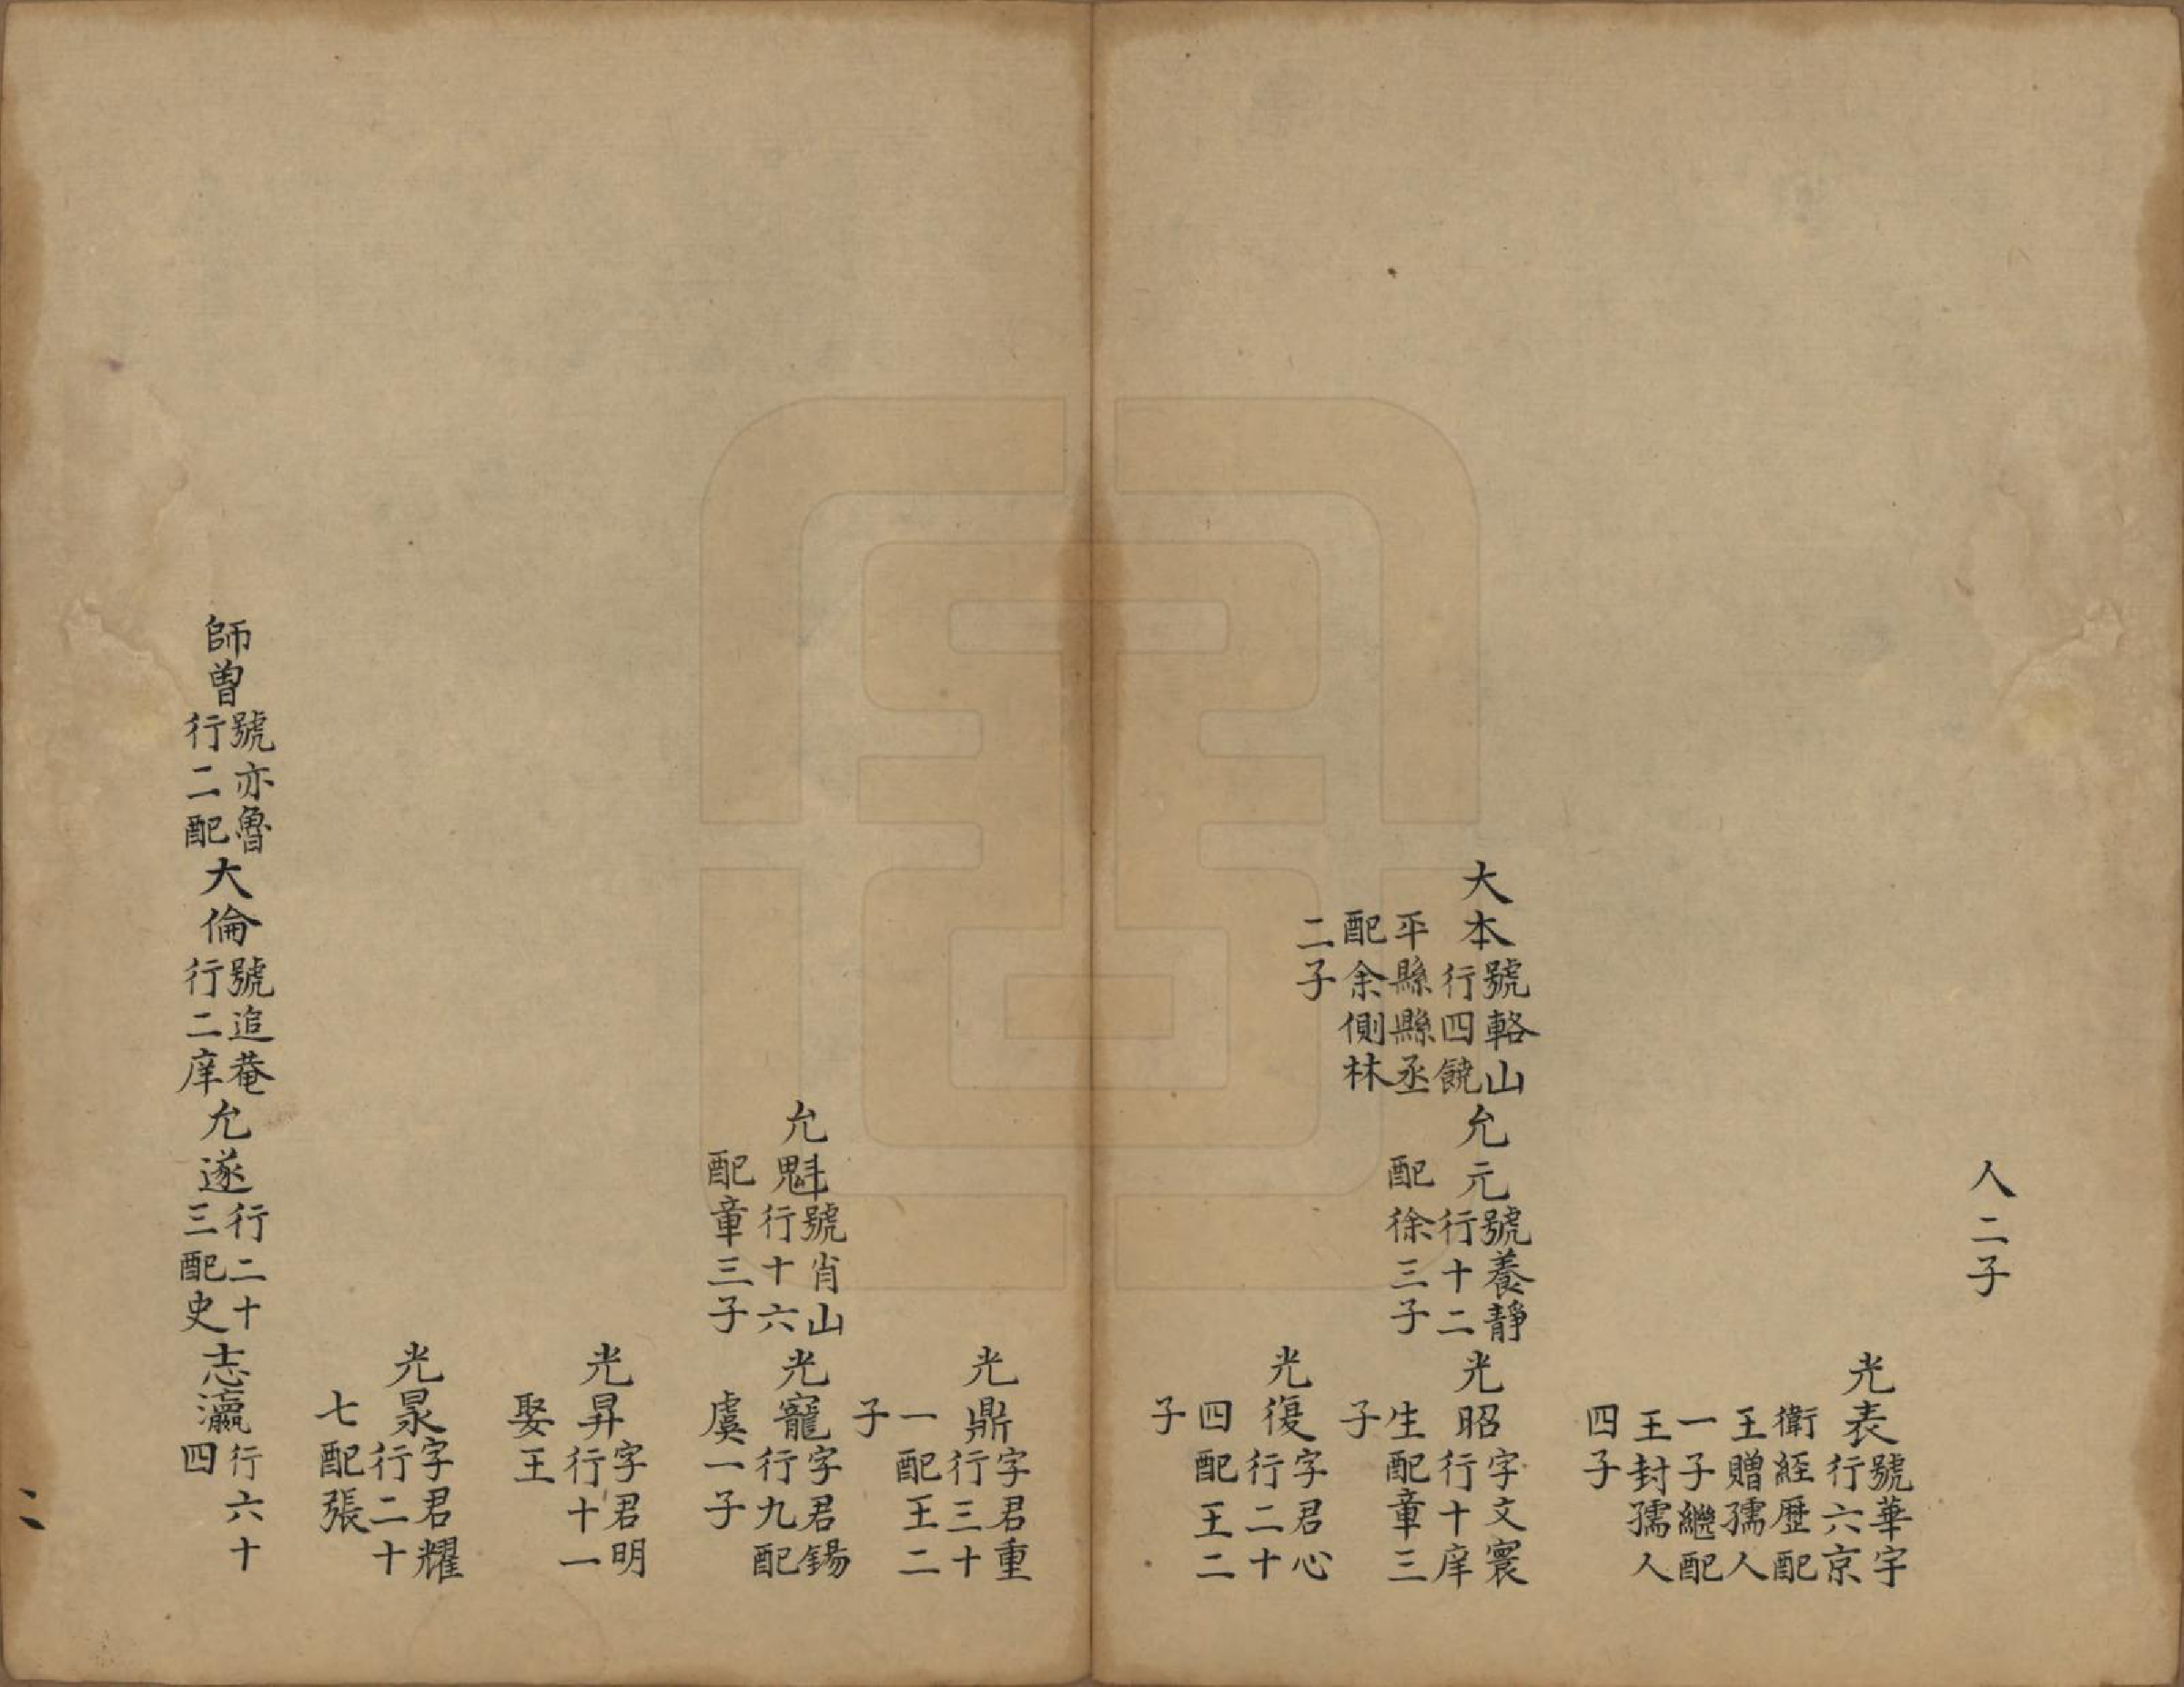 人二子
光表
號華宇
行六京
衛經歷配
王贈孺人
一子繼配
王封孺人
四子
大本
號輅山
行四饒
平縣縣丞
配余側林
二子
允元
號養靜
行十二
配徐三子
光昭
字文寰
行十庠
生配章三
子
光復
字君心
行二十
四配王二
子
光鼎
字君重
行三十
一配王二
子
允魁
號肖山
行十六
配章三子
光寵
字君錫
行九配
虞一子
光昇
字君明
行十一
娶王
光㫤
字君耀
行二十
七配張
師曾
號亦魯
行二配
大倫
號追菴
行二庠
允遂
行二十
三配史
志瀛
行六十
四
二